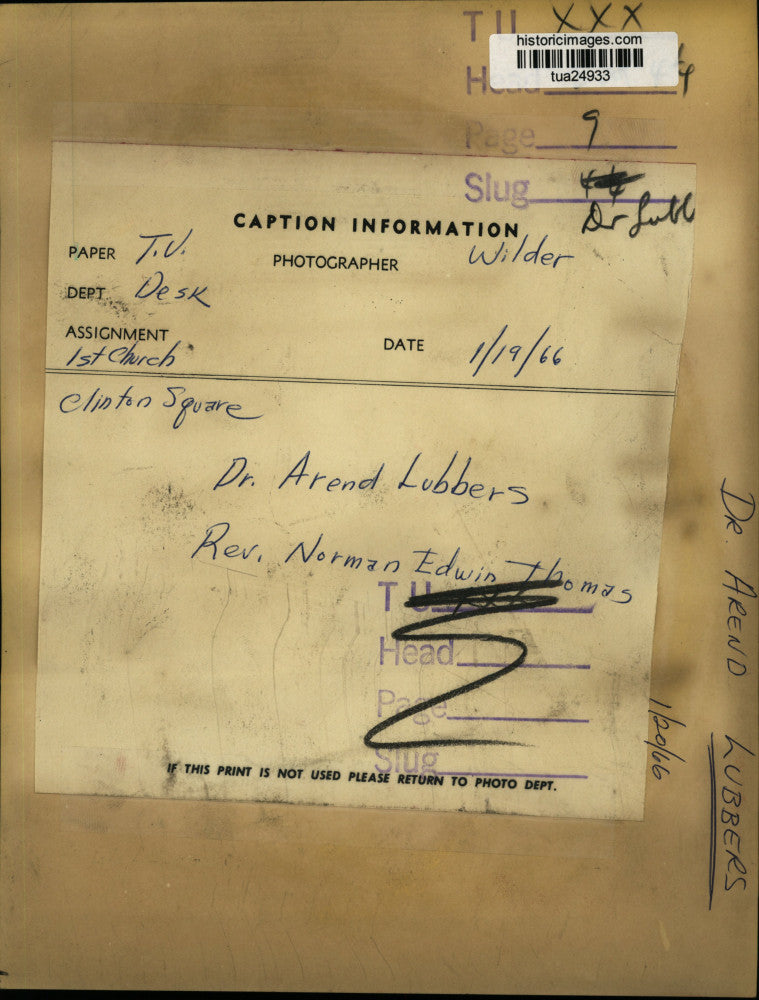 T.U. XXX
historicimages.com
tua24933
Head
Page 9
Slug
Dr Lubb
CAPTION INFORMATION
PAPER T.U. PHOTOGRAPHER Wilder
DEPT Desk
ASSIGNMENT DATE 1/19/66
1st Church
Clinton Square
Dr. Arend Lubbers
Rev. Norman Edwin Thomas
T.U.
Head
Page
Slug
IF THIS PRINT IS NOT USED PLEASE RETURN TO PHOTO DEPT.
1/20/66
DR. AREND LUBBERS